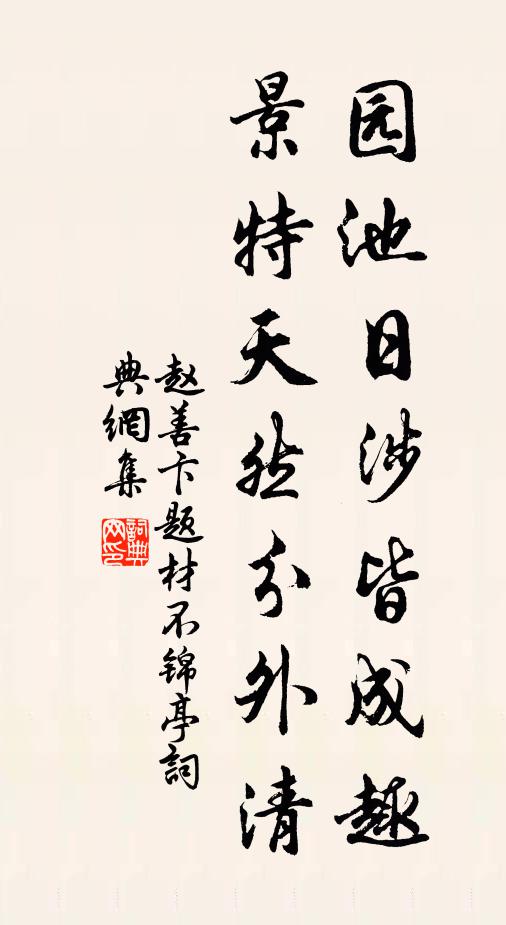 园池日涉皆成趣
景特天然分外清
赵善卞题材不锦亭詞
典網集
詞典
网印